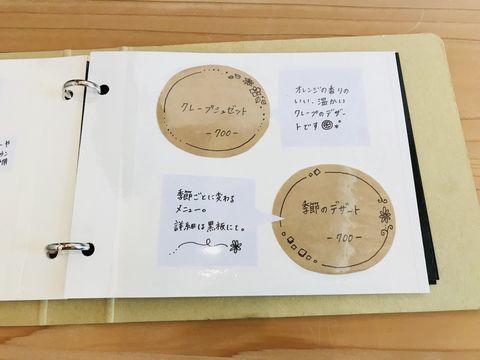 クレープシュゼット
-700-
オレンジの香りの
いい、温かい
クレープのデザー
トです
季節ごとに変わる
メニュー。
詳細は黒板にて。
季節のデザート
-700-